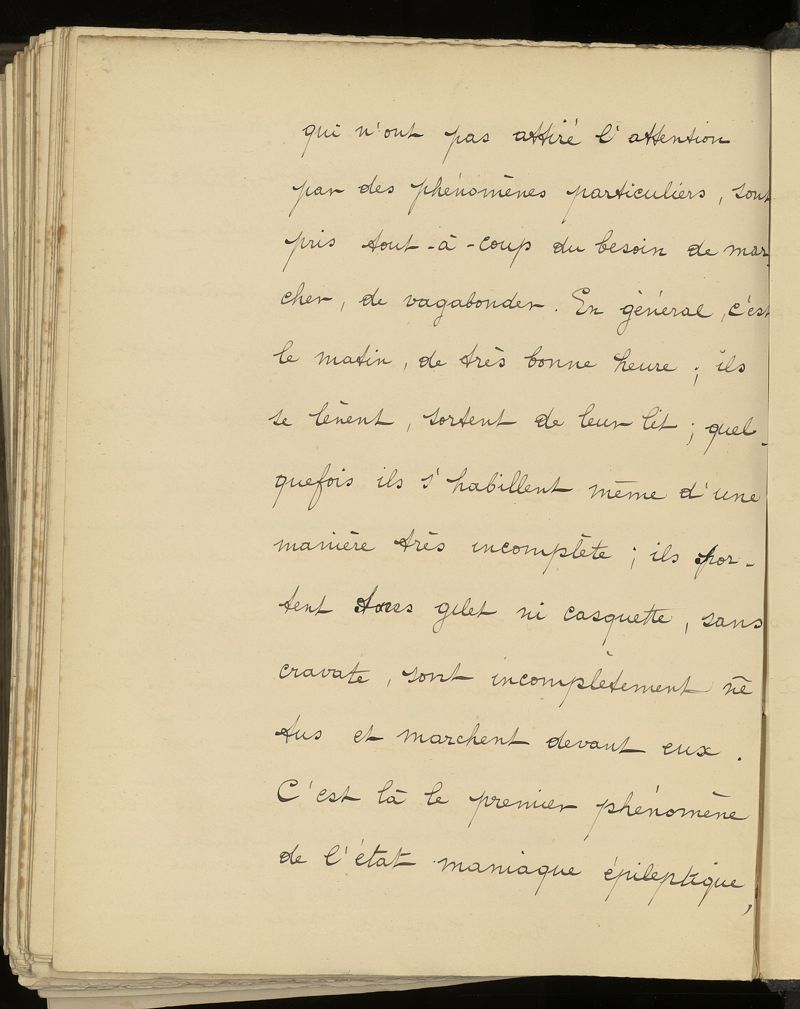 qui n'ont pas attiré l'attention
par des phénomènes particuliers, sont
pris tout-à-coup du besoin de mar
cher, de vagabonder. En général, c'est
le matin, de très bonne heure ; ils
se lèvent, sortent de leur lit ; quel-
quefois ils s'habillent même d'une
manière très incomplète ; ils por-
tent gilet ni casquette, sans
cravate, sont incomplètement vê
tus et marchent devant eux.
C'est là le premier phénomène
de l'état maniaque épileptique,